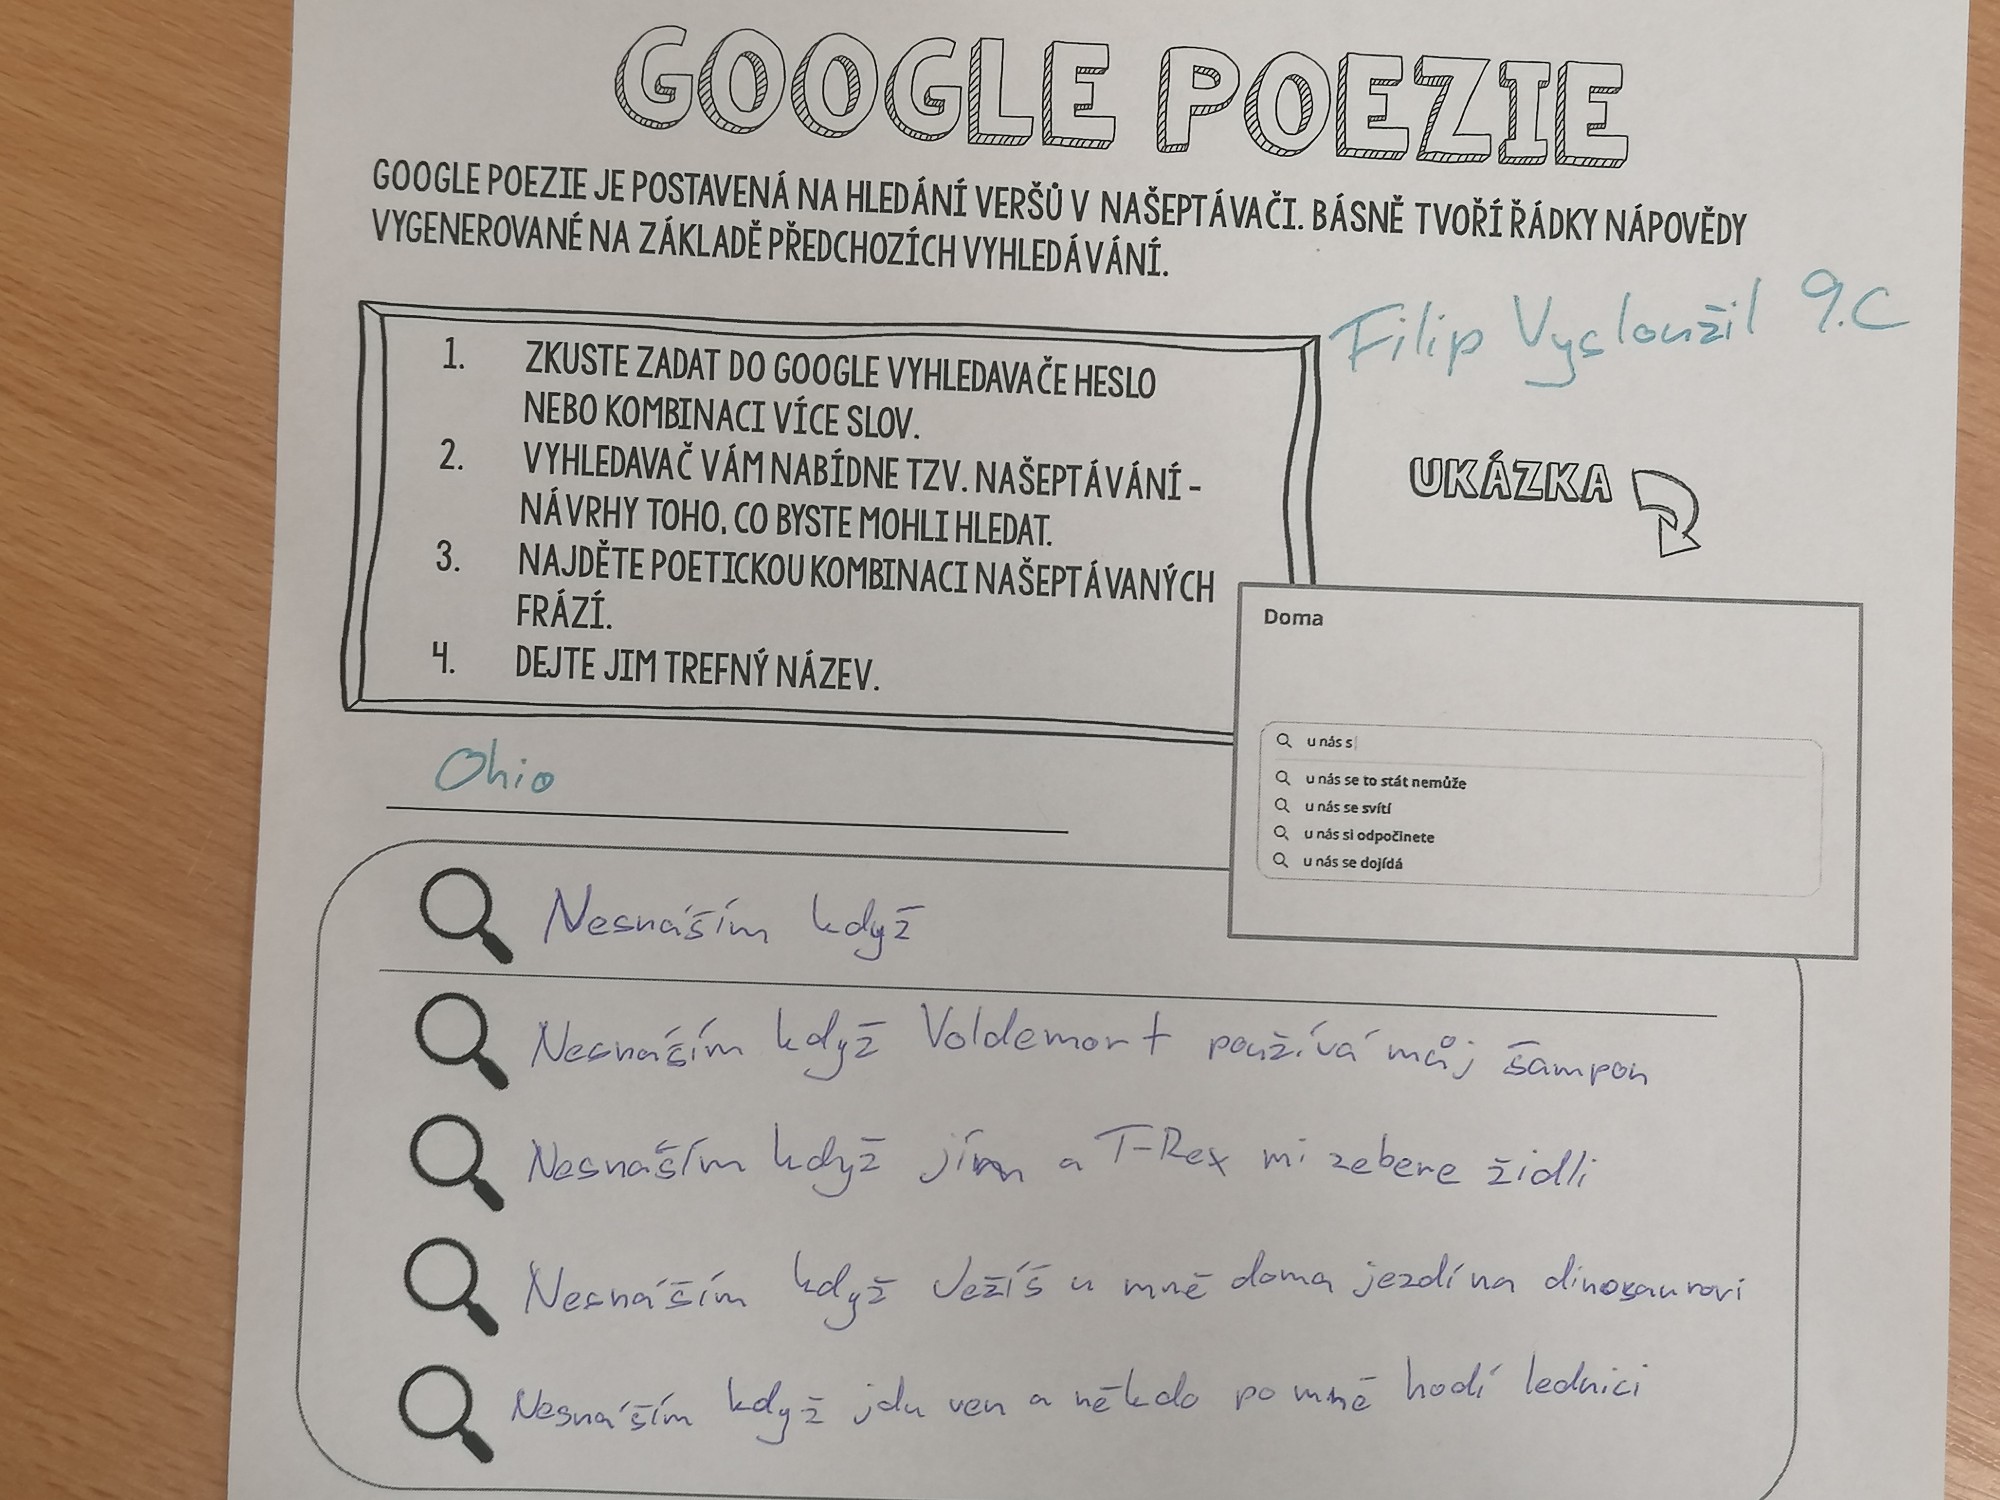 GOOGLE POEZIE
GOOGLE POEZIE JE POSTAVENÁ NA HLEDÁNÍ VERŠŮ V NAŠEPTÁVAČI. BÁSNĚ TVOŘÍ ŘÁDKY NÁPOVĚDY
VYGENEROVANÉ NA ZÁKLADĚ PŘEDCHOZÍCH VYHLEDÁVÁNÍ.
Filip Vysloužil 9.C
1. ZKUSTE ZADAT DO GOOGLE VYHLEDAVAČE HESLO
NEBO KOMBINACI VÍCE SLOV.
2. VYHLEDAVAČ VÁM NABÍDNE TZV. NAŠEPTÁVÁNÍ -
NÁVRHY TOHO, CO BYSTE MOHLI HLEDAT.
3. NAJDĚTE POETICKOU KOMBINACI NAŠEPTÁVANÝCH
FRÁZÍ.
4. DEJTE JIM TREFNÝ NÁZEV.
UKÁZKA
Doma
u nás s
u nás se to stát nemůže
u nás se svítí
u nás si odpočinete
u nás se dojídá
Ohio
Nesnáším když
Nesnáším když Voldemort používá můj šampon
Nesnáším když jím a T-Rex mi zebere židli
Nesnáším když Ježíš u mně doma jezdí na dinosaurovi
Nesnáším když jdu ven a někdo po mně hodí lednici